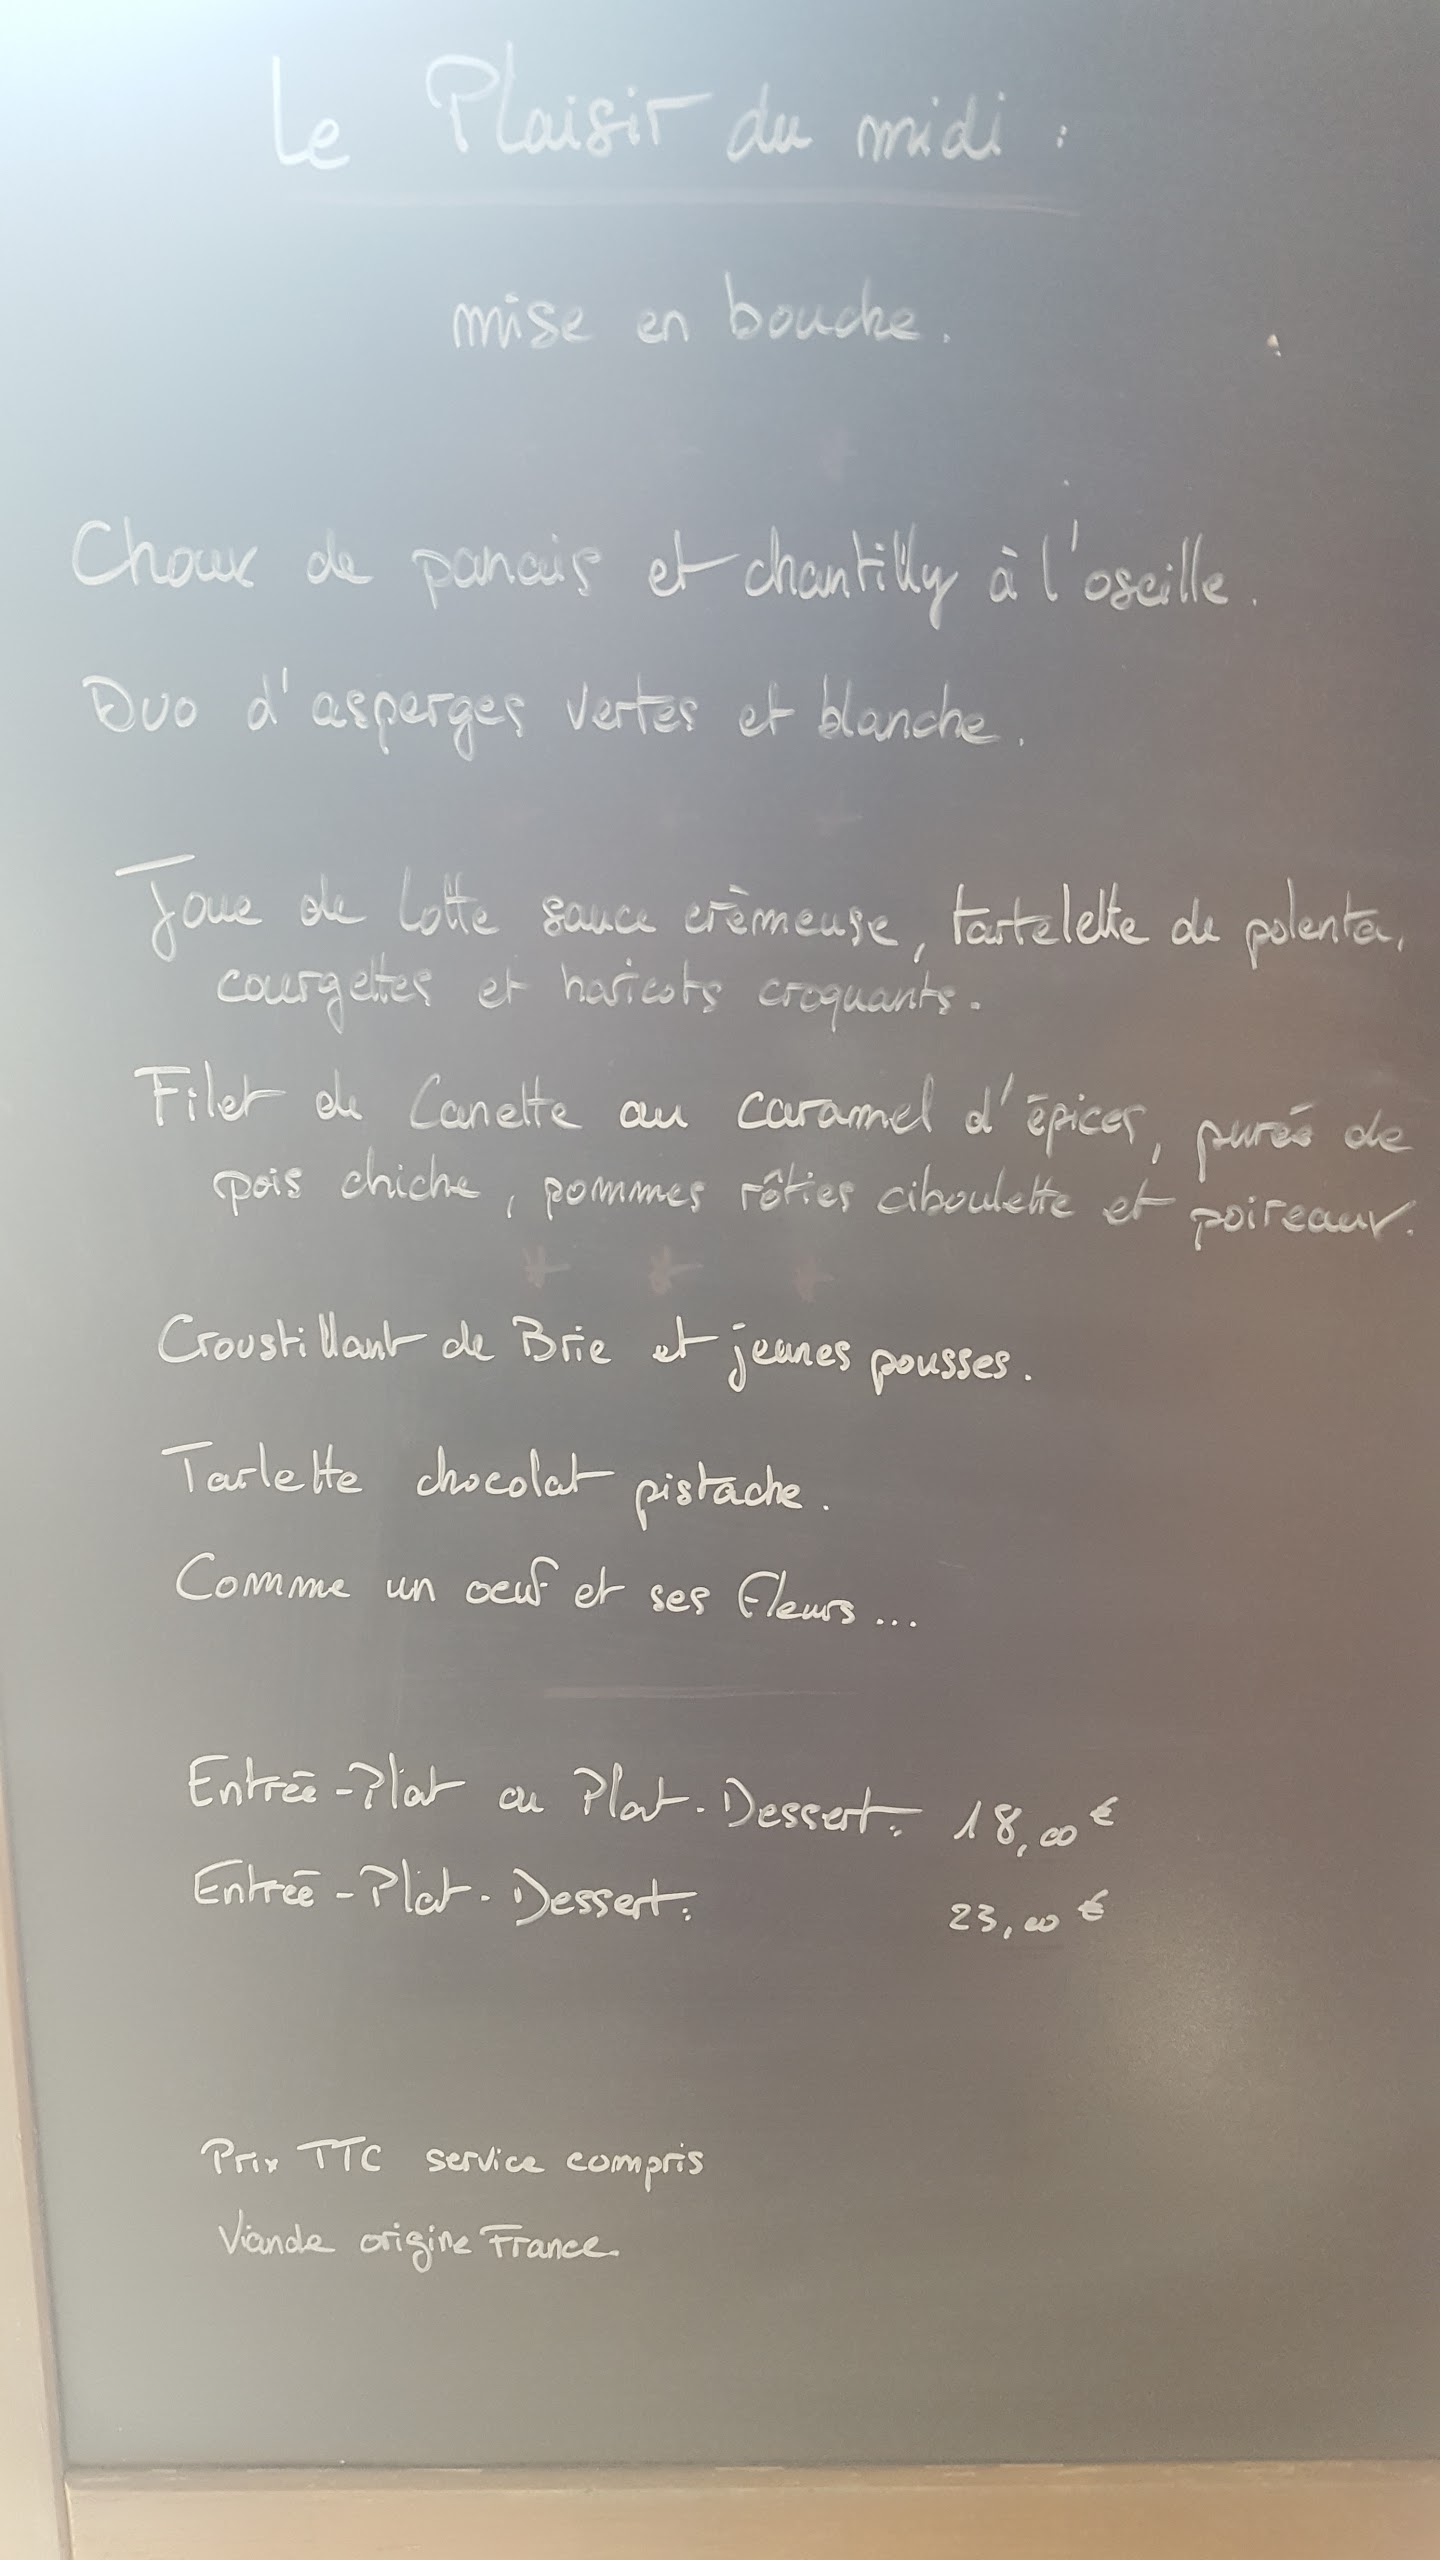 Le Plaisir du midi :
mise en bouche.
Choux de panais et chantilly à l'oseille.
Duo d'asperges vertes et blanche.
Joue de Lotte sauce crèmeuse, tartelette de polenta,
courgettes et haricots croquants.
Filet de Canette au caramel d'épices, purée de
pois chiche, pommes rôties ciboulette et poireaux.
* * *
Croustillant de Brie et jeunes pousses.
Tarlette chocolat pistache.
Comme un oeuf et ses fleurs...
Entrée - Plat ou Plat - Dessert : 18,00 €
Entrée - Plat - Dessert : 23,00 €
Prix TTC service compris
Viande origine France.